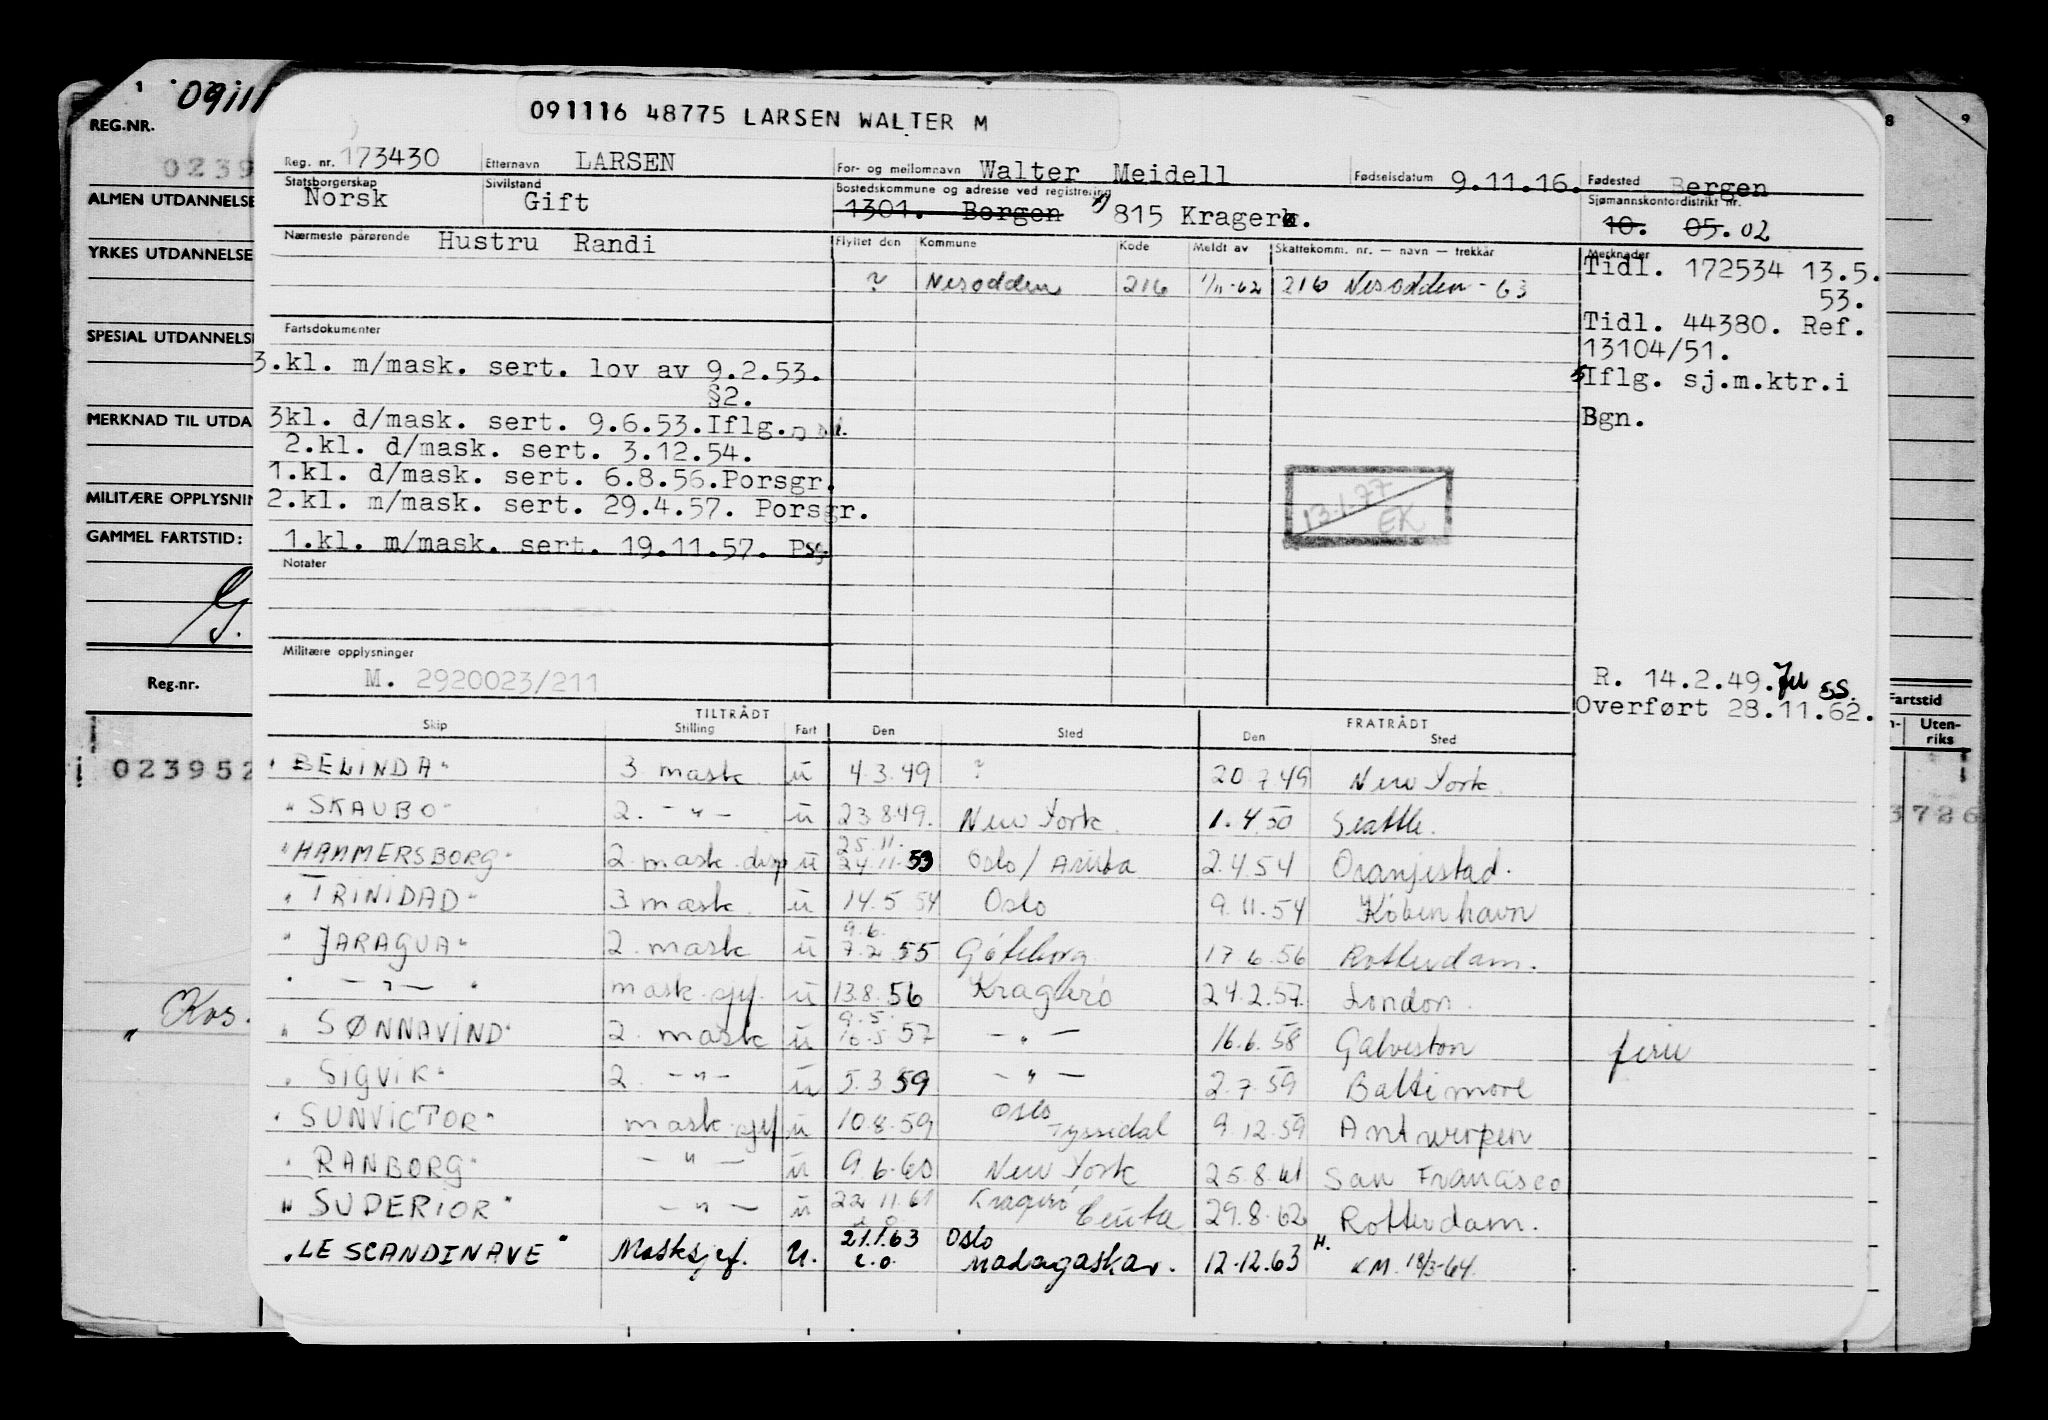 1
09111
REG.NR.
0239
ALMEN UTDANNELSE
YRKES UTDANNELSE
SPESIAL UTDANNELSE
MERKNAD TIL UTDA
MILITÆRE OPPLYSNIN
GAMMEL FARTSTID:
G.
Reg.nr.
023952
„ Kos.
8 9
Fartstid
Uten-
riks
3726
091116 48775 LARSEN WALTER M
Reg. nr. 173430 Etternavn LARSEN For- og mellomnavn Walter Meidell Fødselsdatum 9.11.16. Fødested Bergen
Statsborgerskap Norsk Sivilstand Gift Bostedskommune og adresse ved registrering 1301. Bergen 815 Kragerø. Sjømannskontordistrikt nr. 10. 05. 02
Nærmeste pårørende Hustru Randi Flyttet den Kommune Kode Meldt av Skattekomm. nr. — navn — trekkår Merknader
? Nesodden 216 1/11-62 216 Nesodden - 63
Tidl. 172534 13.5.
53.
Tidl. 44380. Ref.
13104/51.
Iflg. sj.m.ktr.i
Bgn.
Fartsdokumenter
3.kl. m/mask. sert. lov av 9.2.53.
§2.
3kl. d/mask. sert. 9.6.53.Iflg.
2.kl. d/mask. sert. 3.12.54.
1.kl. d/mask. sert. 6.8.56.Porsgr.
2.kl. m/mask. sert. 29.4.57. Porsgr.
1.kl. m/mask. sert. 19.11.57. Psg.
13.1.77
EK
Notater
Militære opplysninger
M. 2920023/211
R. 14.2.49. SS.
Overført 28.11.62.
TILTRÅDT FRATRÅDT
Skip Stilling Fart Den Sted Den Sted
"BELINDA" 3. mask. u 4.3.49 ? 20.7.49 New York.
"SKAUBO" 2. -"- u 23.8.49. New York. 1.4.50 Seattle.
25.11.
"HAMMERSBORG" 2. mask. disp u 24.11.53 Oslo/Aruba 2.4.54 Oranjestad.
"TRINIDAD" 3 mask. u 14.5.54 Oslo 9.11.54 København
9.6.
"JARAGUA" 2. mask u 7.2.55 Göteborg 17.6.56 Rotterdam.
" -"- " mask.sjef. u 13.8.56 Kragerø 24.2.57. London.
9.5.
"SØNNAVIND" 2. mask u 10.5.57 -"- 16.6.58 Galveston ferie
"SIGVIK" 2. -"- u 5.3.59 -"- 2.7.59 Baltimore
"SUNVICTOR" mask.sjef u 10.8.59 Oslo Tyssedal 9.12.59 Antwerpen
"RANBORG" -"- u 9.6.60 New York 25.8.61 San Francisco
"SUDERIOR" -"- u 22.11.61 Kragerø Ceuta 29.8.62 Rotterdam.
"LE SCANDINAVE" Masksjef. U. 21.1.63 Oslo Madagaskar. 12.12.63 H. KM. 18/3-64.